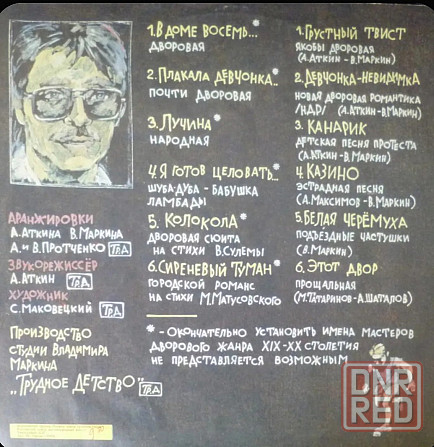 1. В ДОМЕ ВОСЕМЬ...*
ДВОРОВАЯ
2. ПЛАКАЛА ДЕВЧОНКА..*
ПОЧТИ ДВОРОВАЯ
3. ЛУЧИНА*
НАРОДНАЯ
4. Я ГОТОВ ЦЕЛОВАТЬ..*
ШУБА-ДУБА - БАБУШКА
ЛАМБАДЫ
5. КОЛОКОЛА*
ДВОРОВАЯ СЮИТА
НА СТИХИ В.СУЛЕМЫ
6. СИРЕНЕВЫЙ ТУМАН*
ГОРОДСКОЙ РОМАНС
НА СТИХИ М.МАТУСОВСКОГО
1. ГРУСТНЫЙ ТВИСТ
ЯКОБЫ ДВОРОВАЯ
(А.АТКИН - В.МАРКИН)
2. ДЕВЧОНКА-НЕВИДИМКА
НОВАЯ ДВОРОВАЯ РОМАНТИКА
/НДР/ (А.АТКИН - В.МАРКИН)
3. КАНАРИК
ДЕТСКАЯ ПЕСНЯ ПРОТЕСТА
(А.АТКИН - В.МАРКИН)
4. КАЗИНО
ЭСТРАДНАЯ ПЕСНЯ
(А.МАКСИМОВ - В.МАРКИН)
5. БЕЛАЯ ЧЕРЁМУХА
ПОДЪЕЗДНЫЕ ЧАСТУШКИ
(В.МАРКИН)
6. ЭТОТ ДВОР
ПРОЩАЛЬНАЯ
(М.ТАТАРИНОВ - А.ШАТАЛОВ)
АРАНЖИРОВКИ
А.АТКИНА В.МАРКИНА
А. И В. ПРОТЧЕНКО Тр.Д
ЗВУКОРЕЖИССЁР
А.АТКИН Тр.Д
ХУДОЖНИК
С.МАКОВЕЦКИЙ Тр.Д
ПРОИЗВОДСТВО
СТУДИИ ВЛАДИМИРА
МАРКИНА
„ТРУДНОЕ ДЕТСТВО" Тр.Д
* - ОКОНЧАТЕЛЬНО УСТАНОВИТЬ ИМЕНА МАСТЕРОВ
ДВОРОВОГО ЖАНРА XIX-XX СТОЛЕТИЯ
НЕ ПРЕДСТАВЛЯЕТСЯ ВОЗМОЖНЫМ
DNR
RED